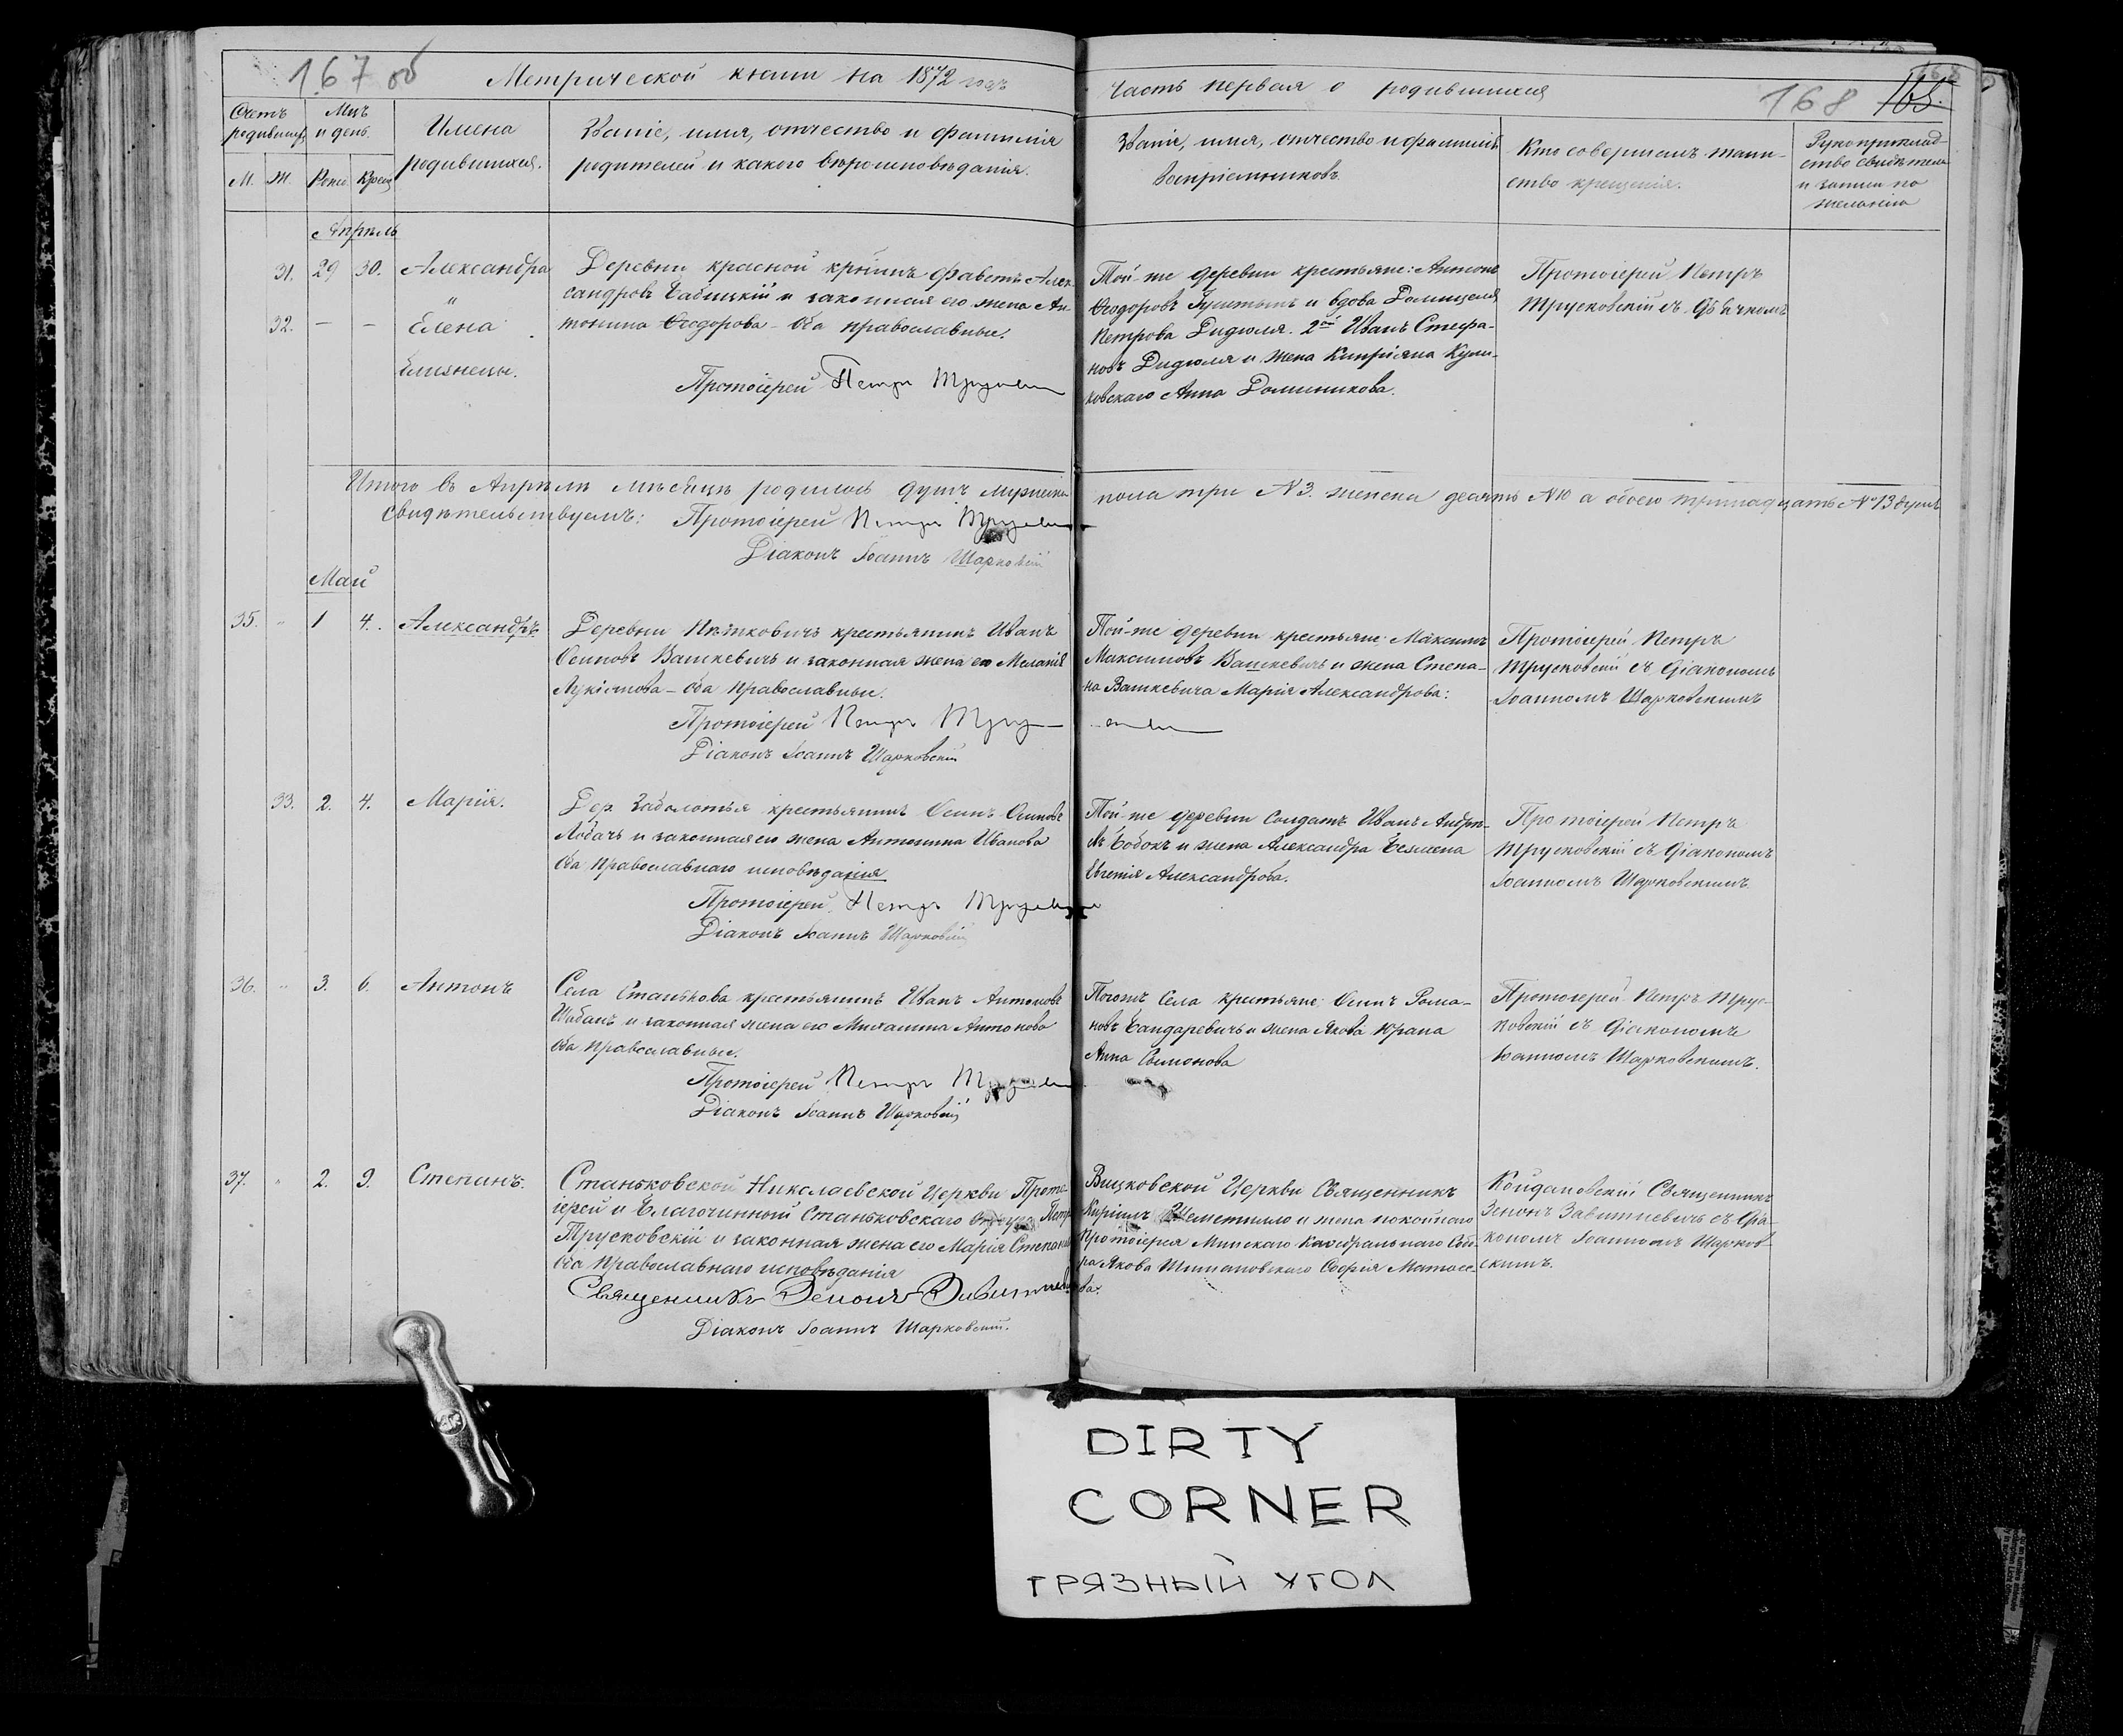 167 об
Метрической книги на 1872 годъ
Часть первая о родившихся
168 168.
Счетъ родившихъ
Мцъ и день.
М. Ж. Рожд. Крещ
Имена
родившихся.
Званіе, имя, отчество и фамилія
родителей и какого вѣроисповѣданія.
Званіе, имя, отчество и фамилія
Воспріемниковъ.
Кто совершалъ таин-
ство крещенія.
Рукоприклад-
ство свидѣтеле
и записи по
желанію
Апрѣль
31. 29 30. Александра
"
32. — — Елена
близнецы.
Деревни красной крестьянинъ Алек-
сандровъ Бабицкій и законная его жена Ан-
тонина Ѳеодорова - оба православные.
Протоіерей Петръ
Той-же деревни крестьяне: Антонъ
Ѳеодоровъ и вдова Домицеля
Петрова Дидюля. 2ой Иванъ Стефа-
новъ Дидюля и жена Кипріяна Кули-
ковскаго Анна Доминикова.
Протоіерей Петръ
Трусковскій съ дьячкомъ
Итого въ Апрѣлѣ мѣсяцѣ родилось душъ мужеска пола три № 3. женска десять № 10 а обоего тринадцать № 13 душъ
Свидѣтельствуемъ: Протоіерей Петръ
Діаконъ Іоаннъ Шарковскій
Май
35. " 1 4. Александръ
Деревни Пѣтковичъ крестьянинъ Иванъ
Осиповъ Вашкевичъ и законная жена его Меланія
Лукіянова - оба православные.
Протоіерей Петръ
Діаконъ Іоаннъ Шарковскій
Той-же деревни крестьяне: Максимъ
Максимовъ Вашкевичъ и жена Степа-
на Вашкевича Марія Александрова:
Протоіерей Петръ
Трусковскій съ діакономъ
Іоанномъ Шарковскимъ
33. 2. 4. Марія.
Дер. Заболотья крестьянинъ Осипъ Осиповъ
Лобачъ и законная его жена Антонина Иванова
оба православнаго исповѣданія
Протоіерей Петръ
Діаконъ Іоаннъ Шарковскій
Той-же деревни солдатъ Иванъ Андре-
евъ Бобокъ и жена Александра Безмена
Евгенія Александрова.
Протоіерей Петръ
Трусковскій съ діакономъ
Іоанномъ Шарковскимъ
36. " 3. 6. Антонъ
Села Станькова крестьянинъ Иванъ Антоновъ
Шабанъ и законная жена его Михалина Антонова
оба православные.
Протоіерей Петръ
Діаконъ Іоаннъ Шарковскій
Тогожъ села крестьяне: Осипъ Рома-
новъ Бандаревичъ и жена Якова Юрана
Анна Симонова
Протоіерей Петръ Трус-
ковскій съ діакономъ
Іоанномъ Шарковскимъ.
37. " 2. 9. Степанъ.
Станьковской Николаевской Церкви Прото-
іерей и Благочинный Станьковскаго округа Петръ
Трусковскій и законная жена его Марія Степанова
оба православнаго исповѣданія
Священникъ Зенонъ
Діаконъ Іоаннъ Шарковскій.
Вицковской Церкви Священникъ
Кириллъ Шеметилло и жена покойнаго
Протоіерея Минскаго Каѳедральнаго Собо-
ра Якова Шимановскаго Софія Матѳее-
ва.
Койдановскій Священникъ
Зенонъ Завитневичъ съ діа-
кономъ Іоанномъ Шарков-
скимъ.
DIRTY
CORNER
ГРЯЗНЫЙ УГОЛ